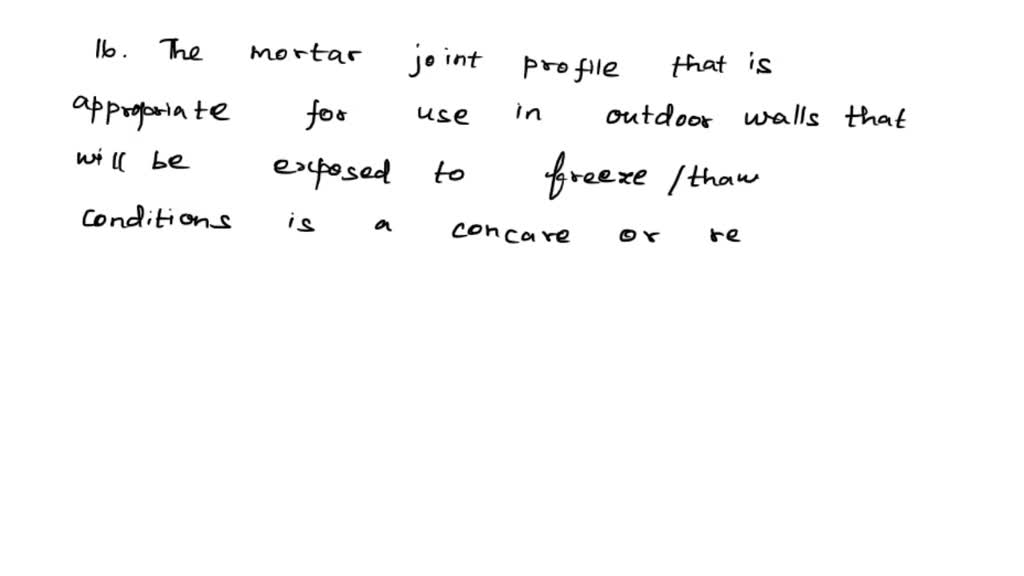 16. The mortar joint profile that is
appropriate for use in outdoor walls that
will be exposed to freeze /thaw
conditions is a concare or re